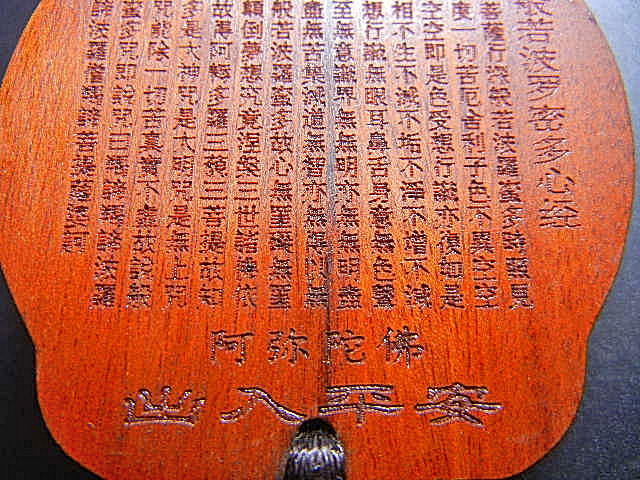 般若波罗密多心经
菩萨行深般若波羅蜜多時照見
度一切苦厄舍利子色不異空空
空空即是色受想行識亦復如是
相不生不滅不垢不淨不增不減
想行識無眼耳鼻舌身意無色聲
至無意識界無無明亦無無明盡
盡無苦集滅道無智亦無得以無
般若波羅蜜多故心無罣礙無罣
顛倒夢想究竟涅槃三世諸佛依
故得阿耨多羅三藐三菩提故知
多是大神咒是大明咒是無上咒
咒能除一切苦真實不虛故說般
蜜多咒即說咒曰揭諦揭諦波羅
阿弥陀佛
出入平安